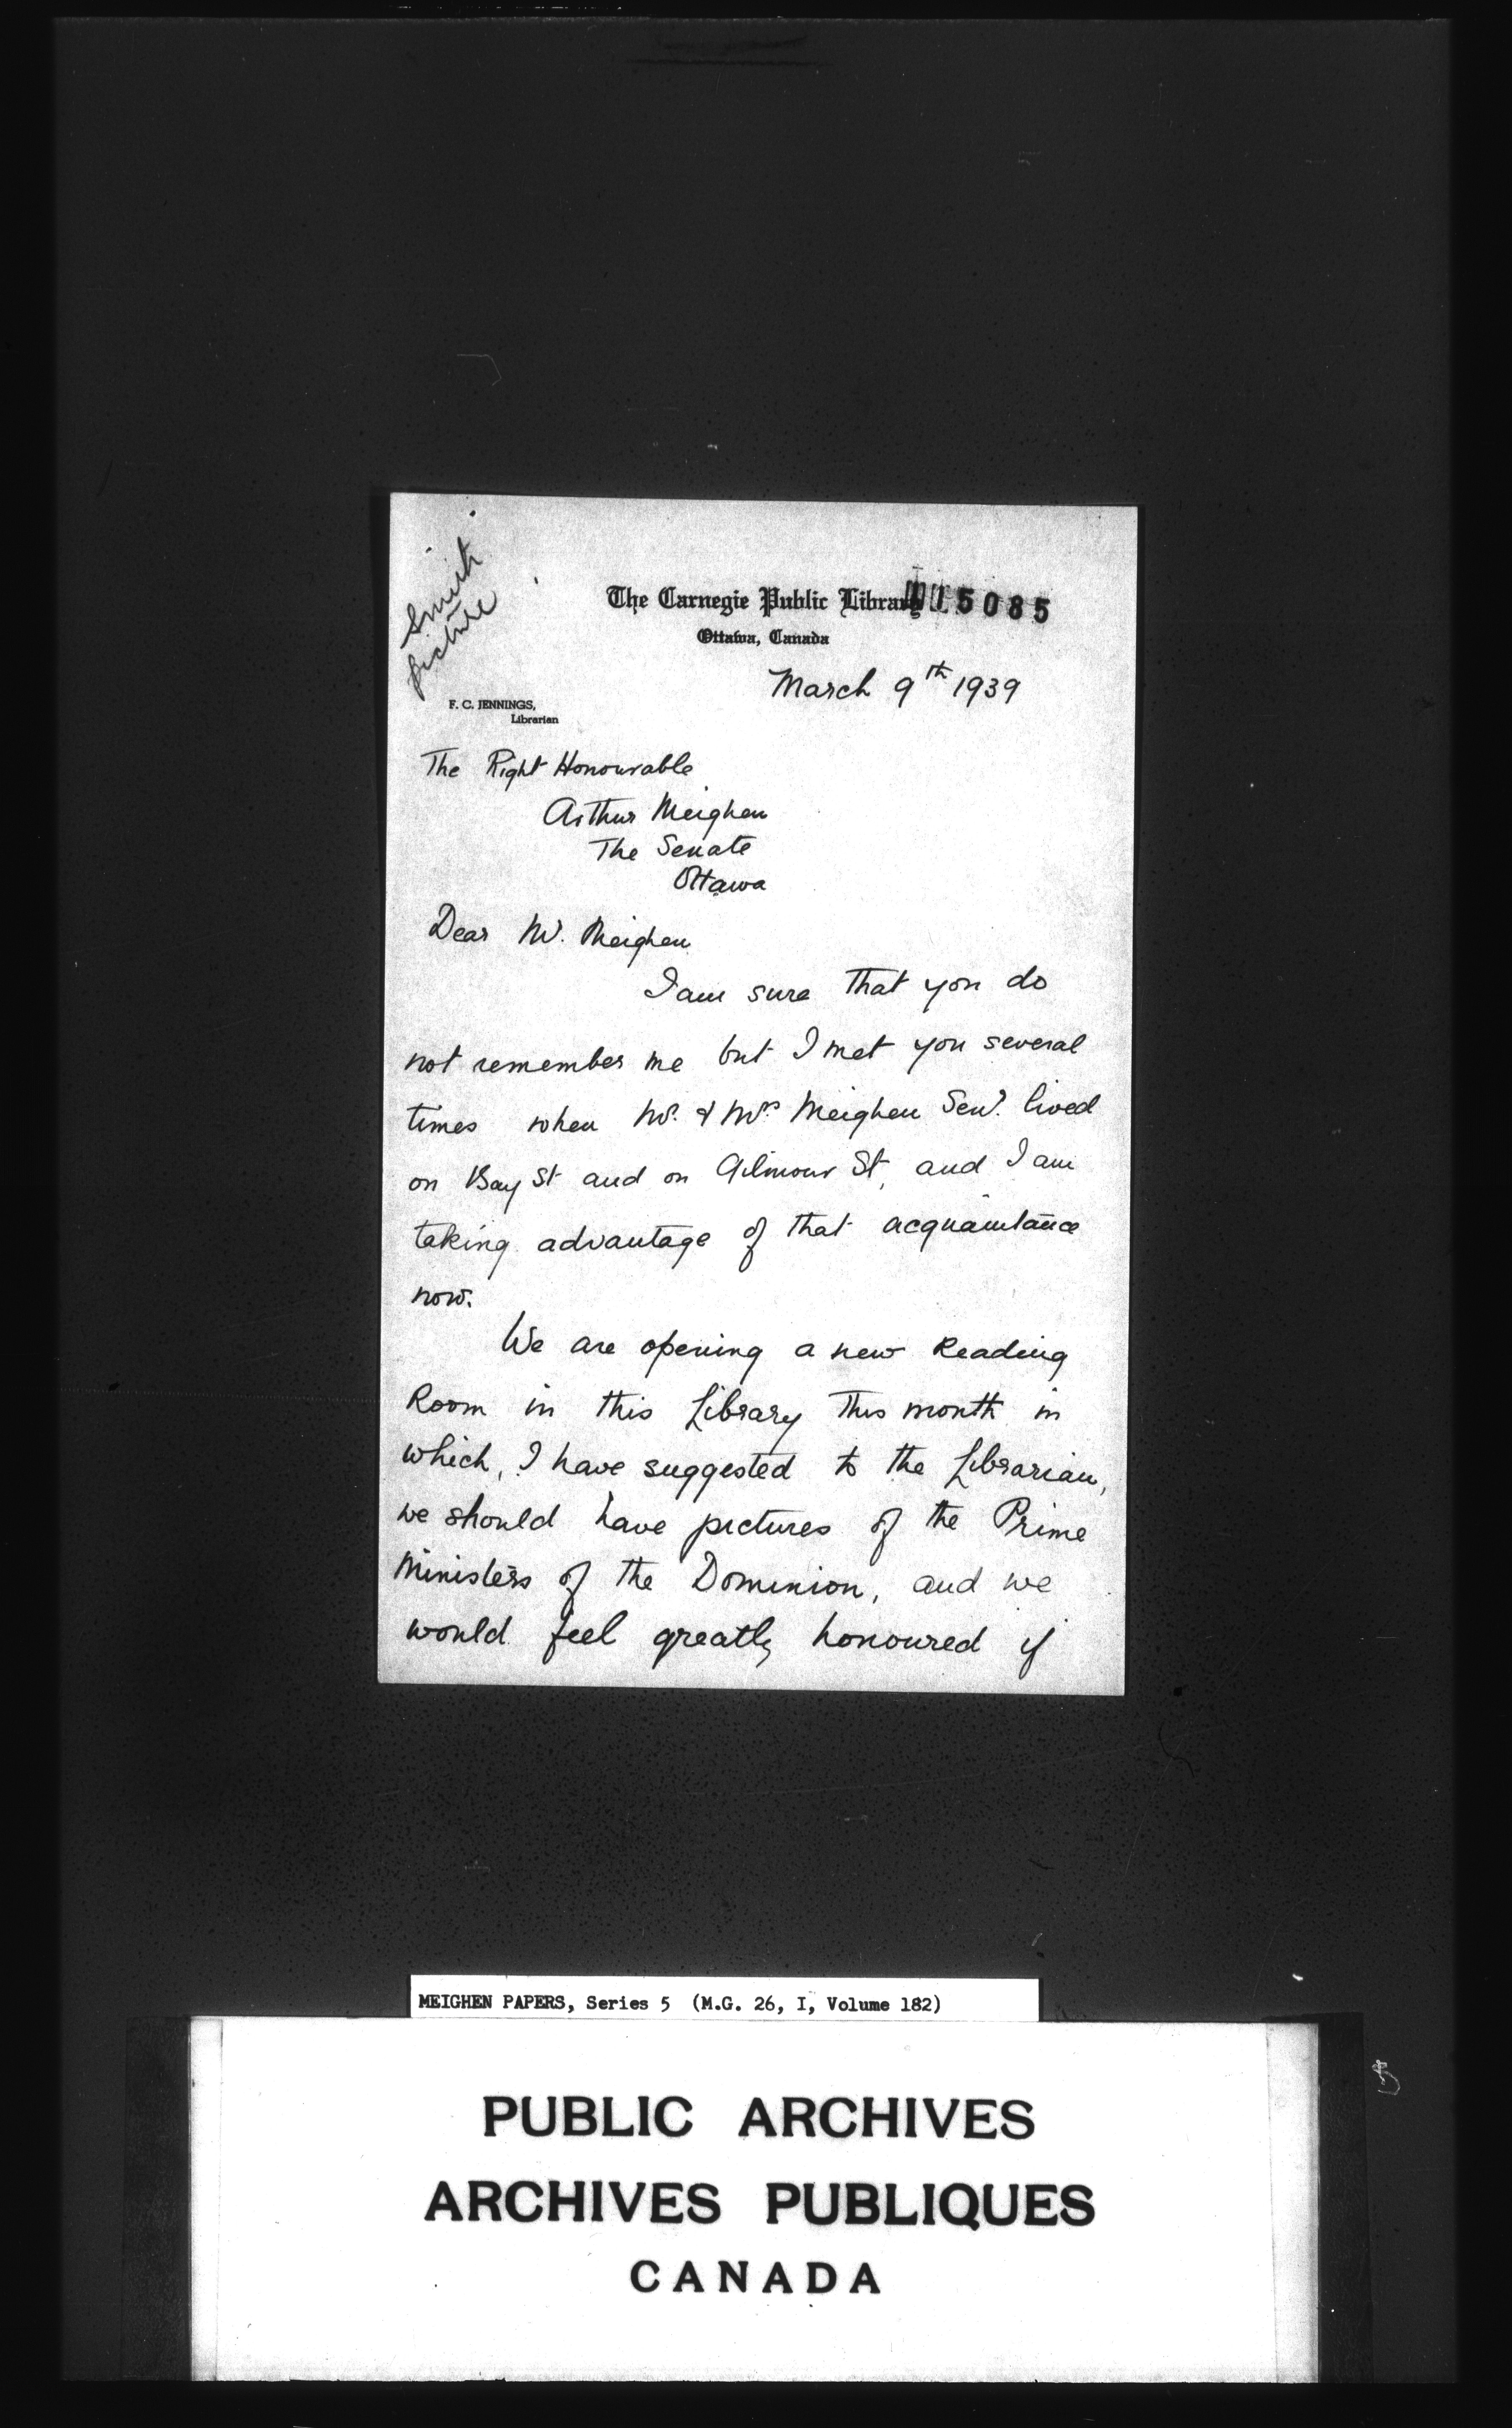 Smith
picture
The Carnegie Public Library
15085
Ottawa, Canada
March 9th 1939
F. C. JENNINGS,
Librarian
The Right Honourable
Arthur Meighen
The Senate
Ottawa
Dear Mr. Meighen
I am sure that you do
not remember me but I met you several
times when Mr. & Mrs Meighen Senr. lived
on Bay St and on Gilmour St, and I am
taking advantage of that acquaintance
now.
We are opening a new Reading
Room in this Library this month in
which, I have suggested to the Librarian,
we should have pictures of the Prime
Ministers of the Dominion, and we
would feel greatly honoured if
MEIGHEN PAPERS, Series 5 (M.G. 26, I, Volume 182)
PUBLIC ARCHIVES
ARCHIVES PUBLIQUES
CANADA